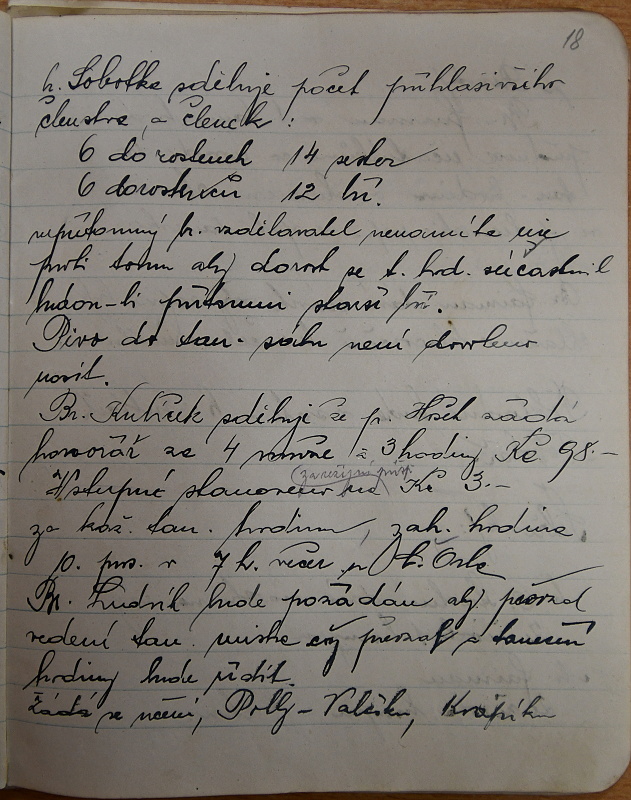 18
br. Sobotka sděluje počet přihlásivšího
členstva, a členek:
6 dorostenek 14 sester
6 dorostenců 12 br.
nepřítomný br. vzdělavatel nenamítá nic
proti tomu aby dorost se t. hod. súčastnil
budou-li přítomni starší br.
Pivo do tan. sálu není dovoleno
nosit.
Br. Kubíček sděluje že p. Hošek žádá
honorář za 4 3 hodiny Kč 98.–
Vstupné stanoveno na Kč 3.–
za kaž. tan. hodinu, zah. hodina
10. pros. v 7 h. večer u Orla
Br. Ludvík bude požádán aby převzal
vedení tan. místo převzal a taneční
hodiny bude řídit.
Žádá se Polky - Valčíku, Kvapíku